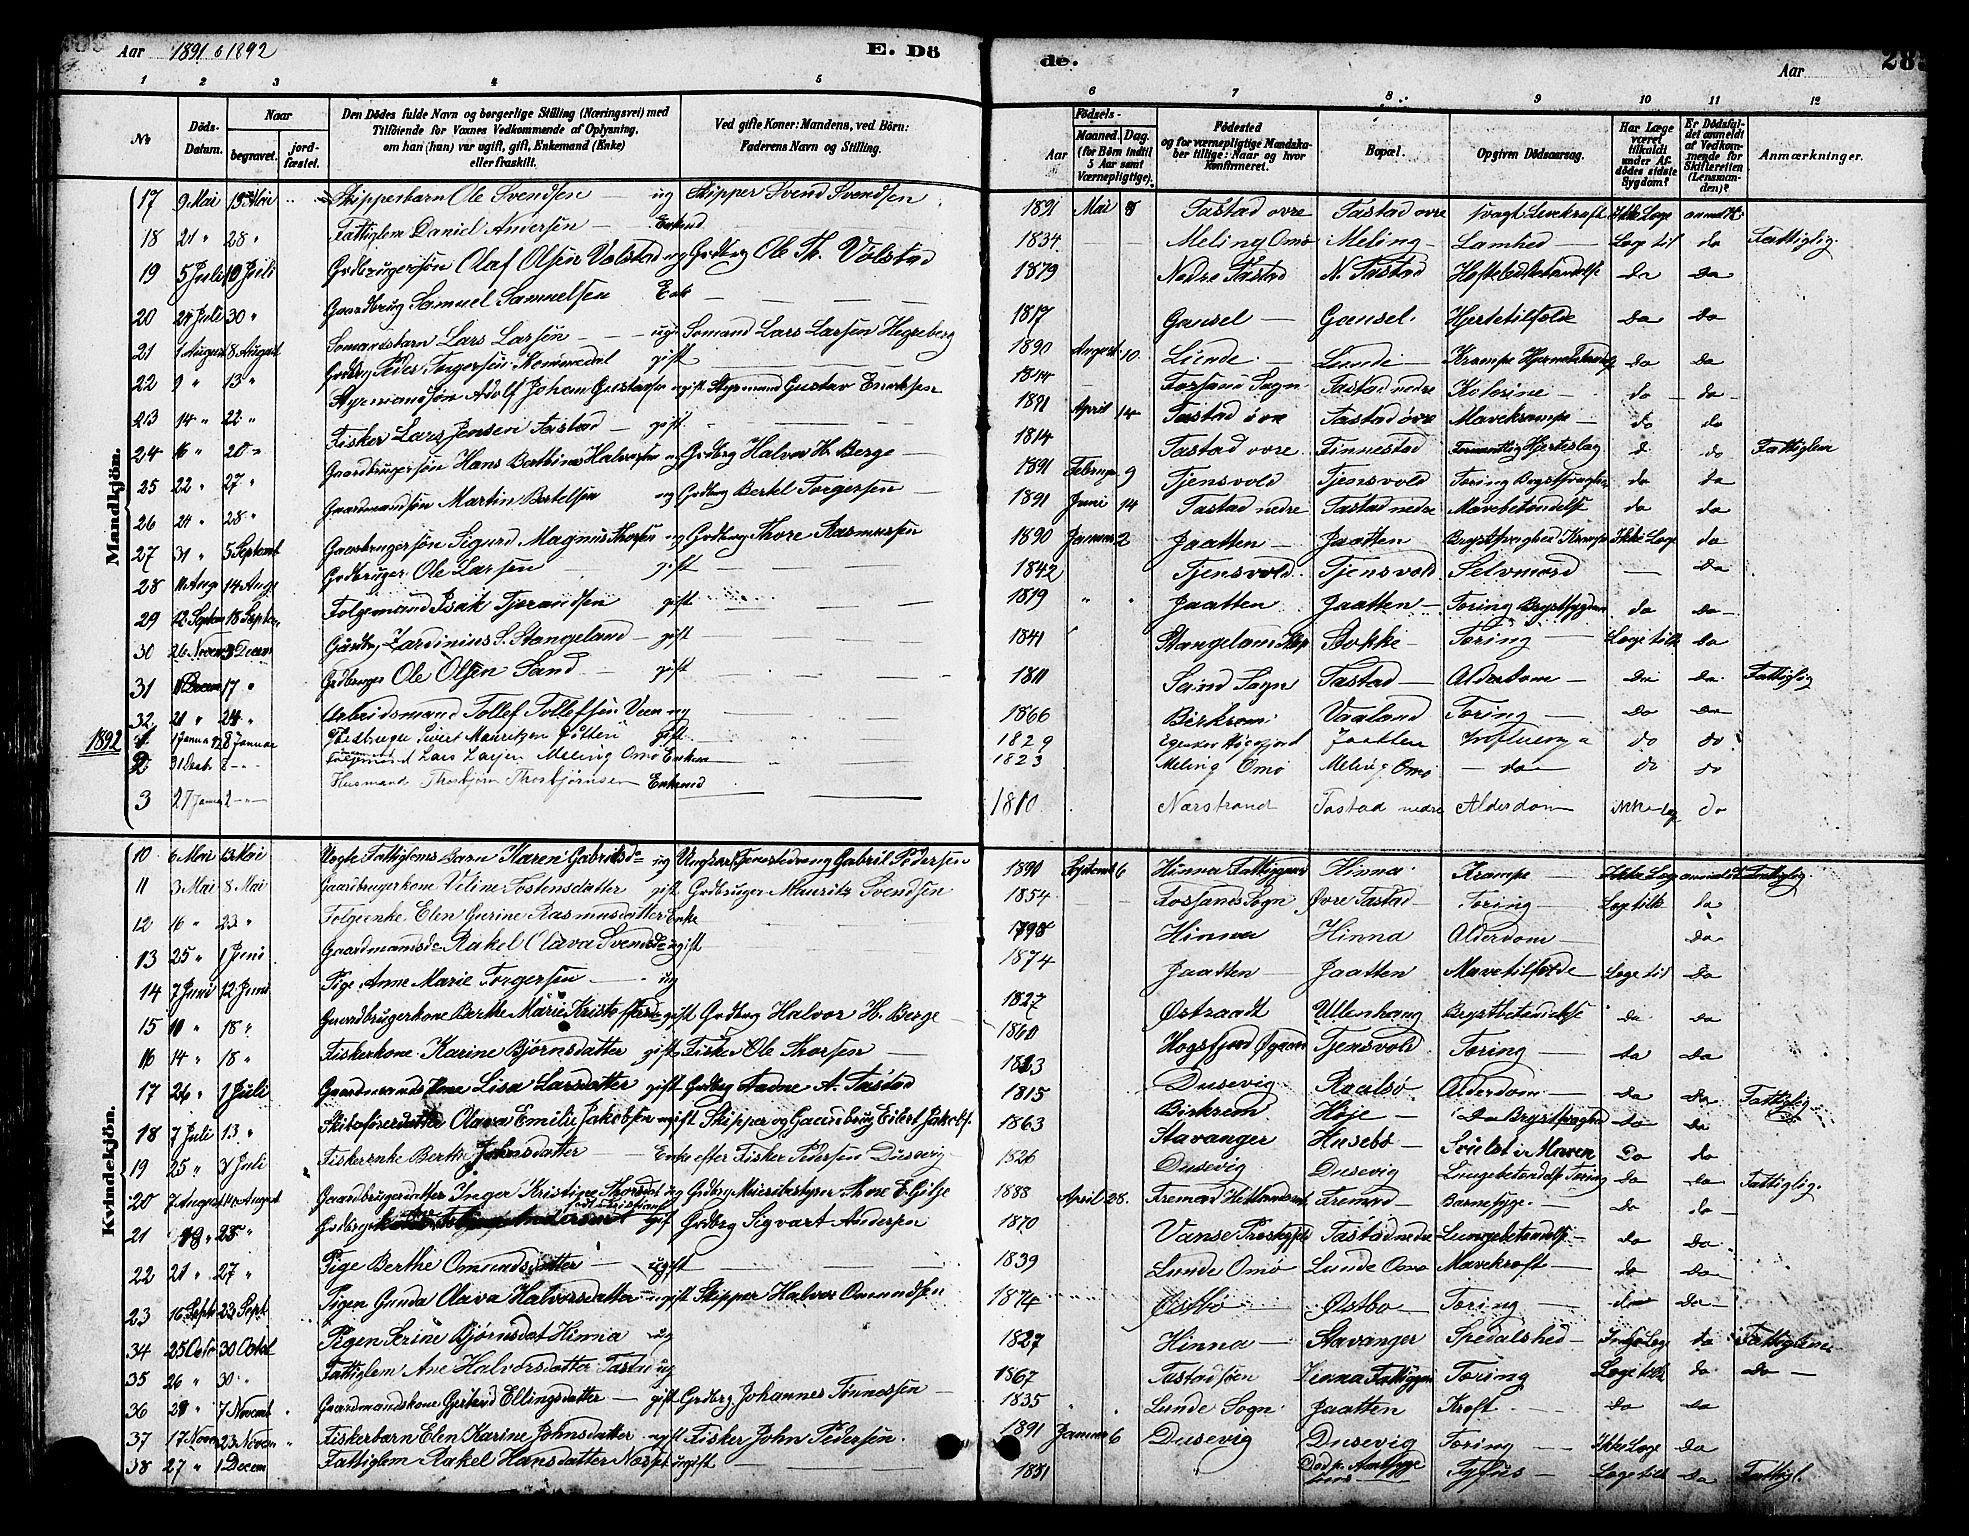 Aar 1891 & 1892
E. Dö
de.
Aar
283
1 2 3 4 5
6 7 8 9 10 11 12
No
Döds-Datum.
Naar
begravet.
jord-fæstet.
Den Dödes fulde Navn og borgerlige Stilling (Næringsvei) med
Tilföiende for Voxnes Vedkommende af Oplysning,
om han (hun) var ugift, gift, Enkemand (Enke)
eller fraskilt.
Ved gifte Koner: Mandens, ved Börn:
Faderens Navn og Stilling.
Födsels-
Aar
Maaned. Dag.
(for Börn indtil
5 Aar samt
Værnepligtige).
Födested
og for værnepligtige Mandska-
ber tillige: Naar og hvor
Konfirmeret.
Bopæl.
Opgiven Dödsaarsag.
Har Læge
været
tilkaldt
under Af-
dödes sidste
Sygdom?
Er Dödsfal-
det anmeldt
af Vedkom-
mende for
Skifteretten
(Lensman-
den)?
Anmærkninger.
Mandkjön.
17 9 Mai 15 Mai Skipperbarn Ole Svendsen — ug Skipper Svend Svendsen 1891 Mai 8 Tastad ovre Tastad ovre svagt Levekraft Ikke Læge anmeldt
18 21 " 28 " Fattiglem Daniel Andersen Enkmd 1834 Meling Omø Meling Lamhed Læge til do Fattiglig.
19 5 Juli 10 Juli Grdbrugersøn Olaf Olsen Volstad ug Grdbrg Ole Th. Volstad 1879 Nedre Tastad N. Tastad Hofteledbetændelse da da
20 24 Juli 30 " Gaardbrug Samuel Samuelsen Enk 1817 Gausel Gausel. Hjertetilfelde da da
21 1 August 8 August Somandsbarn Lars Larsen — ugi Somand Lars Larsen Hegreberg 1890 August 10 Lunde Lunde Krampe da da
22 9 " 13 " Grdbrg Peder Torgersen gift 1844 Fossand Sogn Tastad nedre Kolerine do do
23 14 " 22 " Styrmandsøn Adolf Johan Gustavsen ugift Styrmand Gustav Ericksen 1891 April 14 Tastad ovre Tastad øvre Mavekrampe do do
24 16 " 20 " Fisker Lars Jensen Tastad — gift 1814 Tastad ovre Finnestad Formentlig Hjerteslag d do Fattiglem
25 22 " 27 " Gaardbrugersøn Hans Bertinus Halvorsen ug Grdbrg Halvor H. Berge 1891 Februar 9 Tjensvold Tjensvold Tæring da da
26 24 " 28 " Gaardmandsøn Martin Bertelsen ug Grdbrg Bertel Torgersen 1891 Juni 14 Tastad nedre Tastad nedre Mavebetendelse da da
27 31 " 5 Septemb Gaardbrugersøn Sigurd Magnus Thorsen ug Grdbrg Thore Rasmussen 1890 Januar 2 Jaatten Jaatten Brystsvaghed Krampe Ikke Læge da
28 11 Aug 14 Aug Grdbruger Ole Larsen gift 1842 Tjensvold Tjensvold Selvmord — Da
29 12 Septem 18 Septe Folgemand Isak Tjerandsen gift 1819 Jaatten Jaatten Tæring Brystsygdom da do
30 26 Novem 3 Decem Gårdbrg Zardinius S. Stangeland gift 1841 Stangeland Stokke Tæring Læge tilk da
31 11 Decem 17 " Grdbruger Ole Olsen Sand gift 1811 Sand Sogn Tastad Alderdom da da Fattiglig
32 21 " 24 " Arbeidsmand Tollef Tollefsen Veen ug 1866 Birkrem Vaaland Tæring do do
1892 1 1 Januar 8 Januar Grdbruger Sivert Mauritzen gift 1829 Jaatten Influenza do do
2 31 Decb 8 " Folgemand Lars Larsen Meling Omø Enkem 1823 Meling Omø Meling Omø da do do
3 27 Janu 2 " Husmand Thorbjørn Thorbjørnsen Enkemd 1810 Narstrand Tastad nedre Alderdom do
Kvindekjön.
10 6 Mai 13 Mai Uegte Fattiglems Barn Karen Gabriels ug Ungkarl Gabriel Pedersen 1890 Septemb 6 Hinna Fattiggaard Hinna Krampe Ikke Læge anmeldt Fattiglig.
11 3 Mai 8 Mai Gaardbrugerkone Veline Tostensdatter gift Grdbruger Mauritz Svendsen 1854 Fossand Sogn Øvre Tastad Tæring Læge tilk da
12 16 " 23 " Folgeenke Elen Gurine Rasmusdatter Enke 1798 Hinna Hinna Alderdom da
13 25 " 1 Juni Gaardmandsd Rakel Olava Svendsd ugift 1874 Jaatten Jaatten Mavetilfelde Læge til Da
14 7 Juni 12 Juni Pige Anne Marie Torgersen — ug 1827 Østraadt Ullenhaug Brystbetendelse da da
15 10 " 18 " Gaardbrugerkone Berthe Marie Kristoffersd gift Grdbrg Halvor H. Berge 1860 Høgsfjord Tjensvold Tæring da da
16 14 " 18 " Fiskerkone Karine Bjørnsdatter gift Fisker Ole Thorsen 1823 Dusevig Raalsø Alderdom da da
17 26 " 1 Juli Gaardmandskone Lisa Larsdatter gift Grdbrg Aadne A. Tastad 1815 Birkrem Høje Da Brystsvaghed da da Fattiglig.
18 7 Juli 13 " Skibsførerdatter Olava Emilie Jakobsen ugift Skipper og Gaardbrug Eilert Jakobs. 1863 Stavanger Husebø Svulst i Maven Da da
19 25 " 31 Juli Fiskerenke Berthe Johnsdatter Enke efter Fisker Pedersen Dusevig 1826 Dusevig Dusevig Lungebetendelse Tæring da da Fattiglig.
20 7 August 14 August Gaardbrugerdatter Inger Kristine Thorsdat ug Grdbrg Thore E Gilje 1888 April 28 Tremod Hetlandsred Tremod Barnesyge do do
21 19 " 25 " Grdbrgkone Andersen gift Grdbrg Sigvart Andersen 1870 Vanse Prestegjeld Tastad nedre Lungebetendelse do da
22 21 " 27 " Pige Berthe Omundsdatter ugift 1839 Lunde Omø Lunde Omø Mavekræft da da
23 16 Septb 23 Sept Pigen Gunda Olava Halvorsdatter ugift Skipper Halvor Omundsen 1874 Østbø Østbo Tæring da da
34 25 Octo 30 Octob Pigen Serine Bjørnsdat Hinna ug 1827 Hinna Stavanger Spedalshed Ingen Læg da Fattiglem
35 26 " 30 " Fattiglem Ane Halvorsdatter Tastad ug 1867 Tastadsøen Hinna Fattiggaard Tæring Læge tilk do do
36 29 " 7 Novemb Gaardmandskone Gjertrud Ellingsdatter gift Grdbrg Johannes Tønnessen 1835 Lunde Sogn Jaatten Kræft do da
37 17 Novm 23 Novem Fiskerbarn Elen Karine Johnsdatter ugift Fisker John Pedersen 1891 Januar 6 Dusevig Dusevig Tæring Ikke Læge da
38 27 " 1 Decem Fattiglem Rakel Hansdatter ugift 1881 Tyfus Læge tilk da Fattigl.